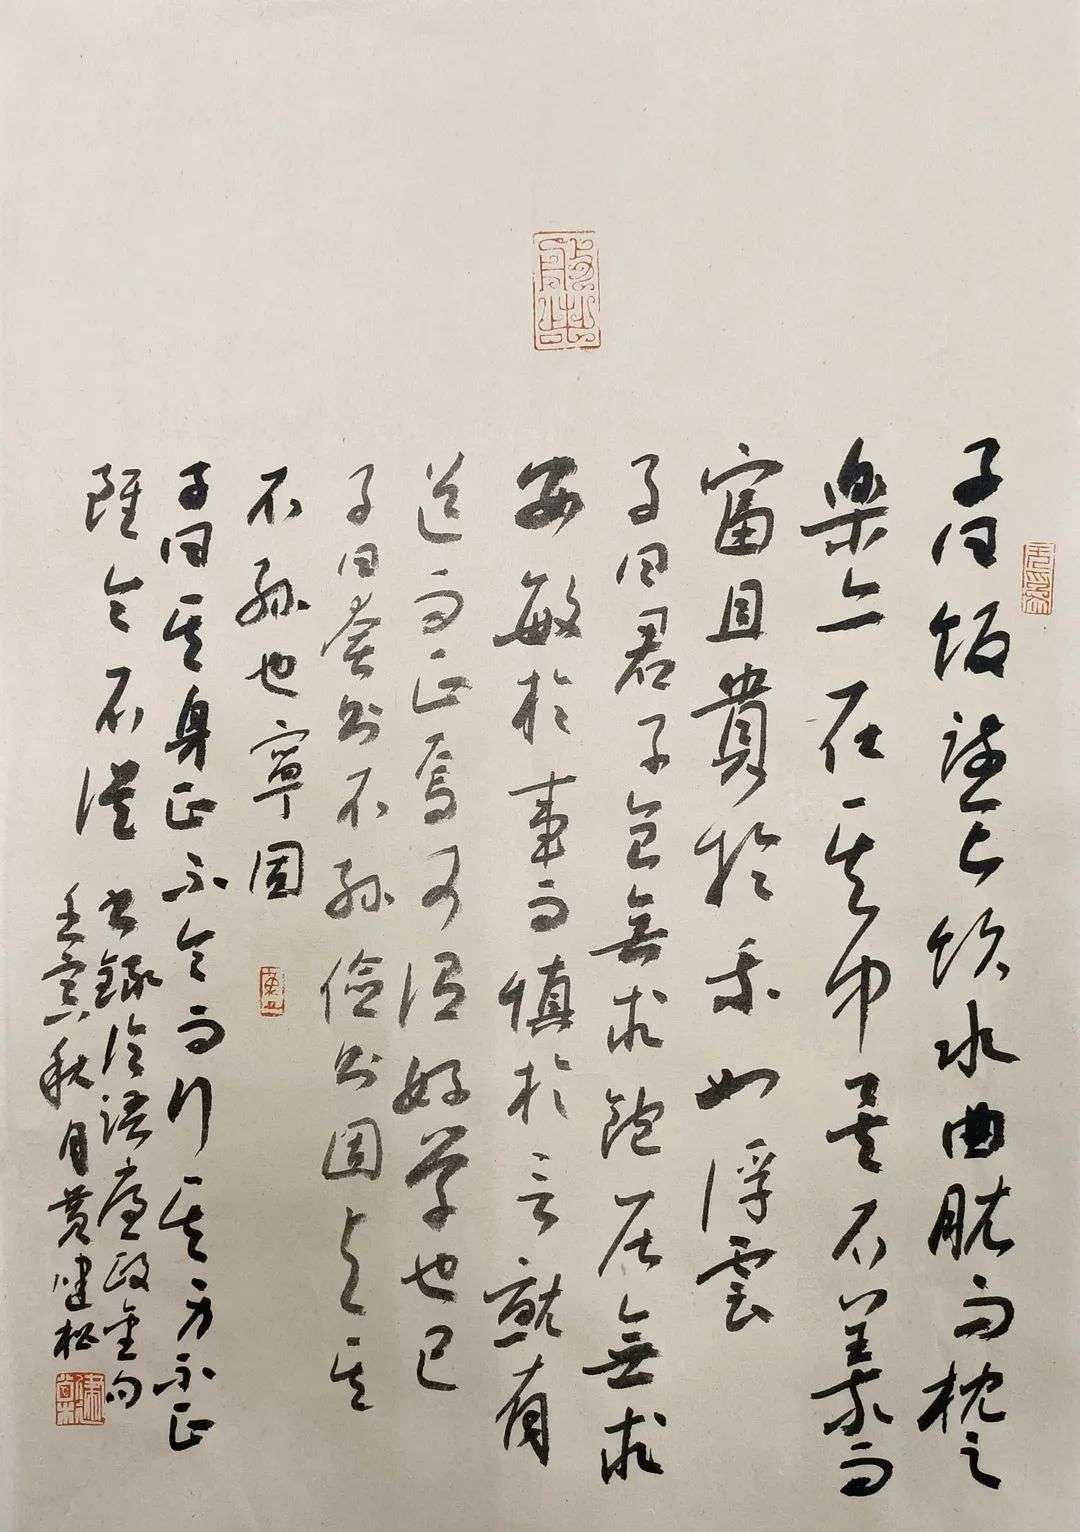 子曰饭疏食饮水曲肱而枕之
楽亦在其中矣不義而
富且貴於我如浮雲
子曰君子食無求飽居無求
安敏於事而慎於言就有
道而正焉可謂好学也已
子曰奢则不孙儉则固与其
不孙也寧固
子曰其身正不令而行其身不正
雖令不從 书録論語廉政金句
壬寅秋月黄健松